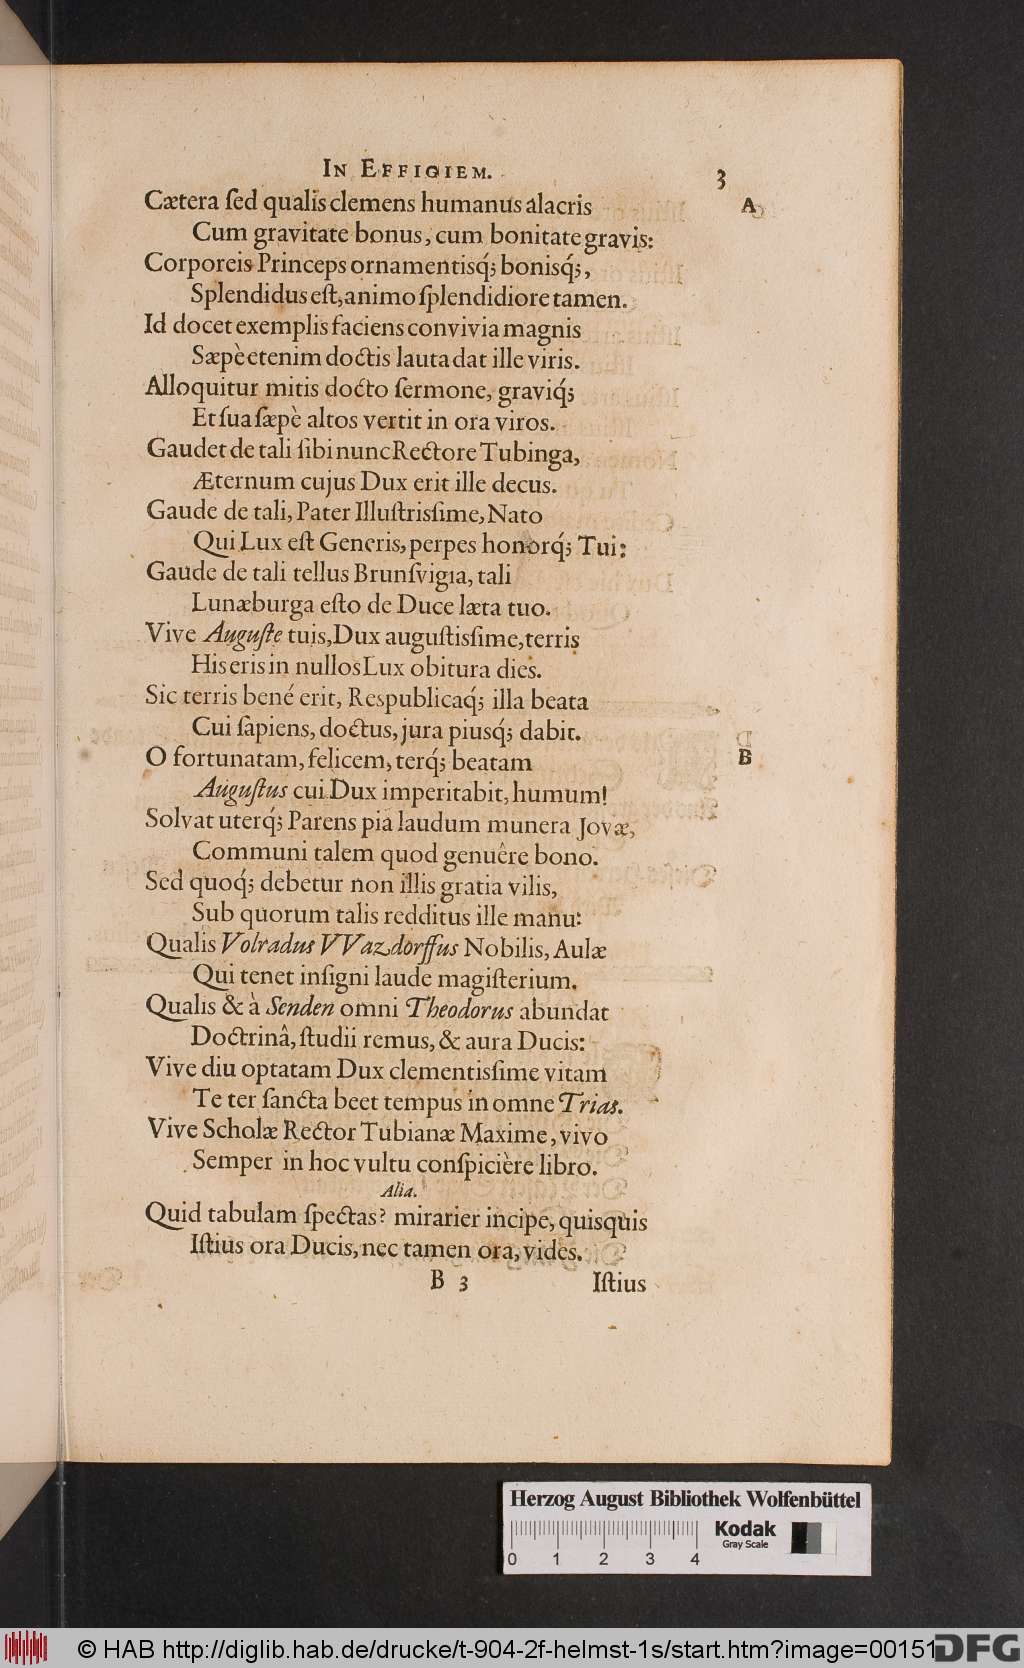 IN EFFIGIEM. 3
Cætera ſed qualis clemens humanus alacris A
Cum gravitate bonus, cum bonitate gravis:
Corporeis Princeps ornamentisq́; bonisq́;,
Splendidus eſt, animo ſplendidiore tamen.
Id docet exemplis faciens convivia magnis
Sæpè etenim doctis lauta dat ille viris.
Alloquitur mitis docto ſermone, graviq́;
Et ſua ſæpè altos vertit in ora viros.
Gaudet de tali ſibi nunc Rectore Tubinga,
Æternum cujus Dux erit ille decus.
Gaude de tali, Pater Illuſtrisſime, Nato
Qui Lux eſt Generis, perpes honorq́; Tui:
Gaude de tali tellus Brunſvigia, tali
Lunæburga eſto de Duce læta tuo.
Vive Auguſte tuis, Dux auguſtisſime, terris
His eris in nullos Lux obitura dies.
Sic terris bené erit, Respublicaq́; illa beata
Cui ſapiens, doctus, jura piusq́; dabit.
O fortunatam, felicem, terq́; beatam B
Auguſtus cui Dux imperitabit, humum!
Solvat uterq́; Parens pia laudum munera Jovæ,
Communi talem quod genuêre bono.
Sed quoq́; debetur non illis gratia vilis,
Sub quorum talis redditus ille manu:
Qualis Volradus VVazdorffus Nobilis, Aulæ
Qui tenet inſigni laude magiſterium.
Qualis & à Senden omni Theodorus abundat
Doctrinâ, ſtudii remus, & aura Ducis:
Vive diu optatam Dux clementisſime vitam
Te ter ſancta beet tempus in omne Trias.
Vive Scholæ Rector Tubianæ Maxime, vivo
Semper in hoc vultu conſpicière libro.
Alia.
Quid tabulam ſpectas? mirarier incipe, quisquis
Iſtius ora Ducis, nec tamen ora, vides.
B 3 Iſtius
Herzog August Bibliothek Wolfenbüttel
Kodak
Gray Scale
0 1 2 3 4
© HAB http://diglib.hab.de/drucke/t-904-2f-helmst-1s/start.htm?image=00151
DFG